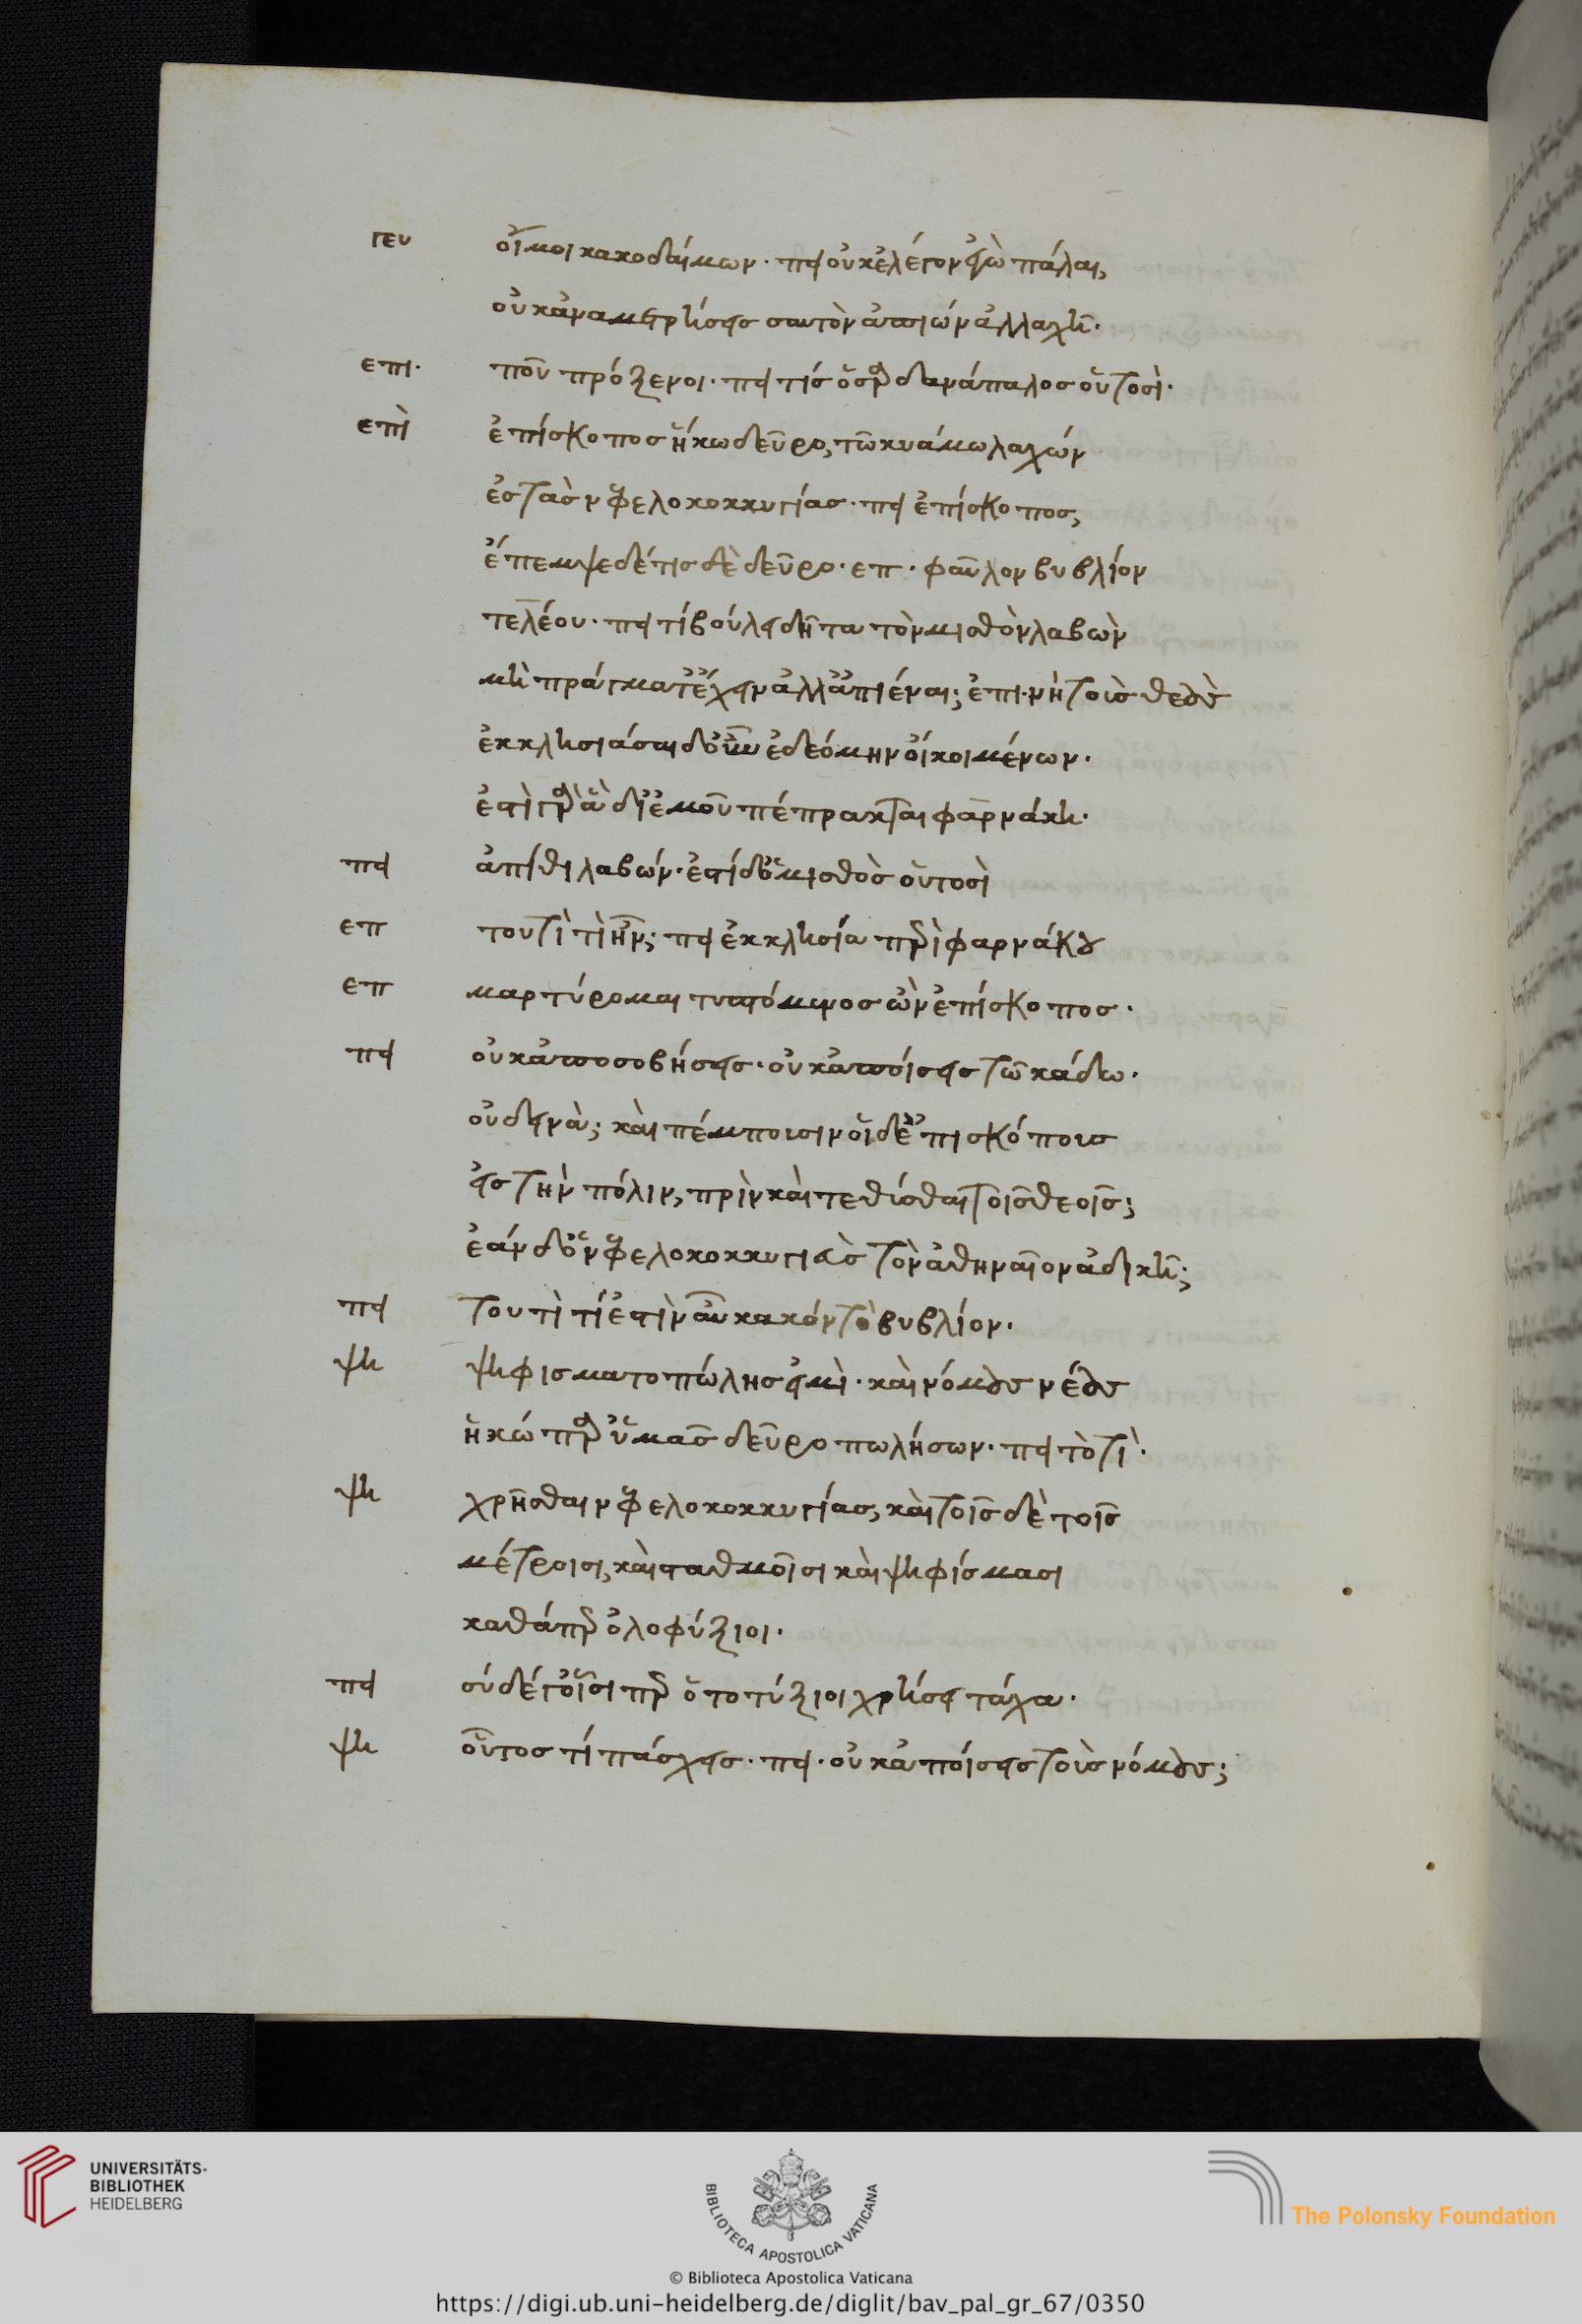 γεω οἴμοι κακοδαίμων· πει οὐκ ἔλεγον ἐγὼ πάλαι,
οὐκ ἀναμετρήσεις σαυτὸν ἀπιὼν ἀλλαχῆ·
επι· ποῦ πρόξενοι· πει τίς ὁ σαρδανάπαλος οὑτοσὶ·
επὶ ἐπίσκοπος ἥκω δεῦρο, τῶ κυάμω λαχών
ἐς τὰς νεφελοκοκκυγίας· πει ἐπίσκοπος,
ἔπεμψε δέ τις δὲ δεῦρο· επ· φαῦλον βυβλίον
τελέου· πει τί βούλει δῆτα τὸν μισθὸν λαβὼν
μὴ πράγματ' ἔχειν ἀλλ' ἀπιέναι; ἐπι· νὴ τοὺς θεοὺς
ἐκκλησιάσαι δ' οὖν ἐδεόμην οἴκοι μένων·
ἐστὶ γὰρ ἃ δι' ἐμοῦ πέπρακται φαρνάκη·
πει ἄπιθι λαβών· ἐστὶ δ' ὁ μισθὸς οὑτοσὶ
επ τουτὶ τὶ ἦν; πει ἐκκλησία περὶ φαρνάκου
επ μαρτύρομαι τυπτόμενος ὢν ἐπίσκοπος·
πει οὐκ ἀποσοβήσεις· οὐκ ἀποίσεις τῶ κάδω·
οὐ δεινὰ; καὶ πέμπουσιν οἵδ' ἐπισκόπους
εἰς τὴν πόλιν, πρὶν καὶ τεθύσθαι τοῖς θεοῖς;
ἐὰν δ' ὁ νεφελοκοκκυγιεὺς τὸν ἀθηναῖον ἀδικῆ;
πει τουτὶ τί ἐστὶν αὖ κακὸν τὸ βυβλίον·
ψη ψηφισματοπώλης εἰμὶ· καὶ νόμους νέους
ἥκω παρ' ὑμᾶς δεῦρο πωλήσων· πει τὸ τὶ·
ψη χρῆσθαι νεφελοκοκκυγίας, καὶ τοῖς δὲ τοῖς
μέτροισι, καὶ σταθμοῖσι καὶ ψηφίσμασι
καθάπερ ὁλοφύξιοι·
πει σὺ δέ γ' οἷσι περ ὁτοτύξιοι χρήσει τάχα·
ψη οὗτος τί πάσχεις· πει· οὐκ ἀποίσεις τοὺς νόμους;
UNIVERSITÄTS-
BIBLIOTHEK
HEIDELBERG
BIBLIOTECA APOSTOLICA VATICANA
The Polonsky Foundation
© Biblioteca Apostolica Vaticana
https://digi.ub.uni-heidelberg.de/diglit/bav_pal_gr_67/0350